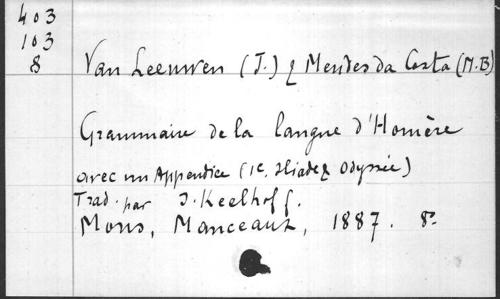 403
103
8
Van Leeuwen (J.) & Mendes da Costa (M.B)
Grammaire de la langue d'Homère
avec un Appendice (Ic. Iliade & Odyssée)
Trad. par J. Keelhoff.
Mons, Manceaux, 1887. 8º